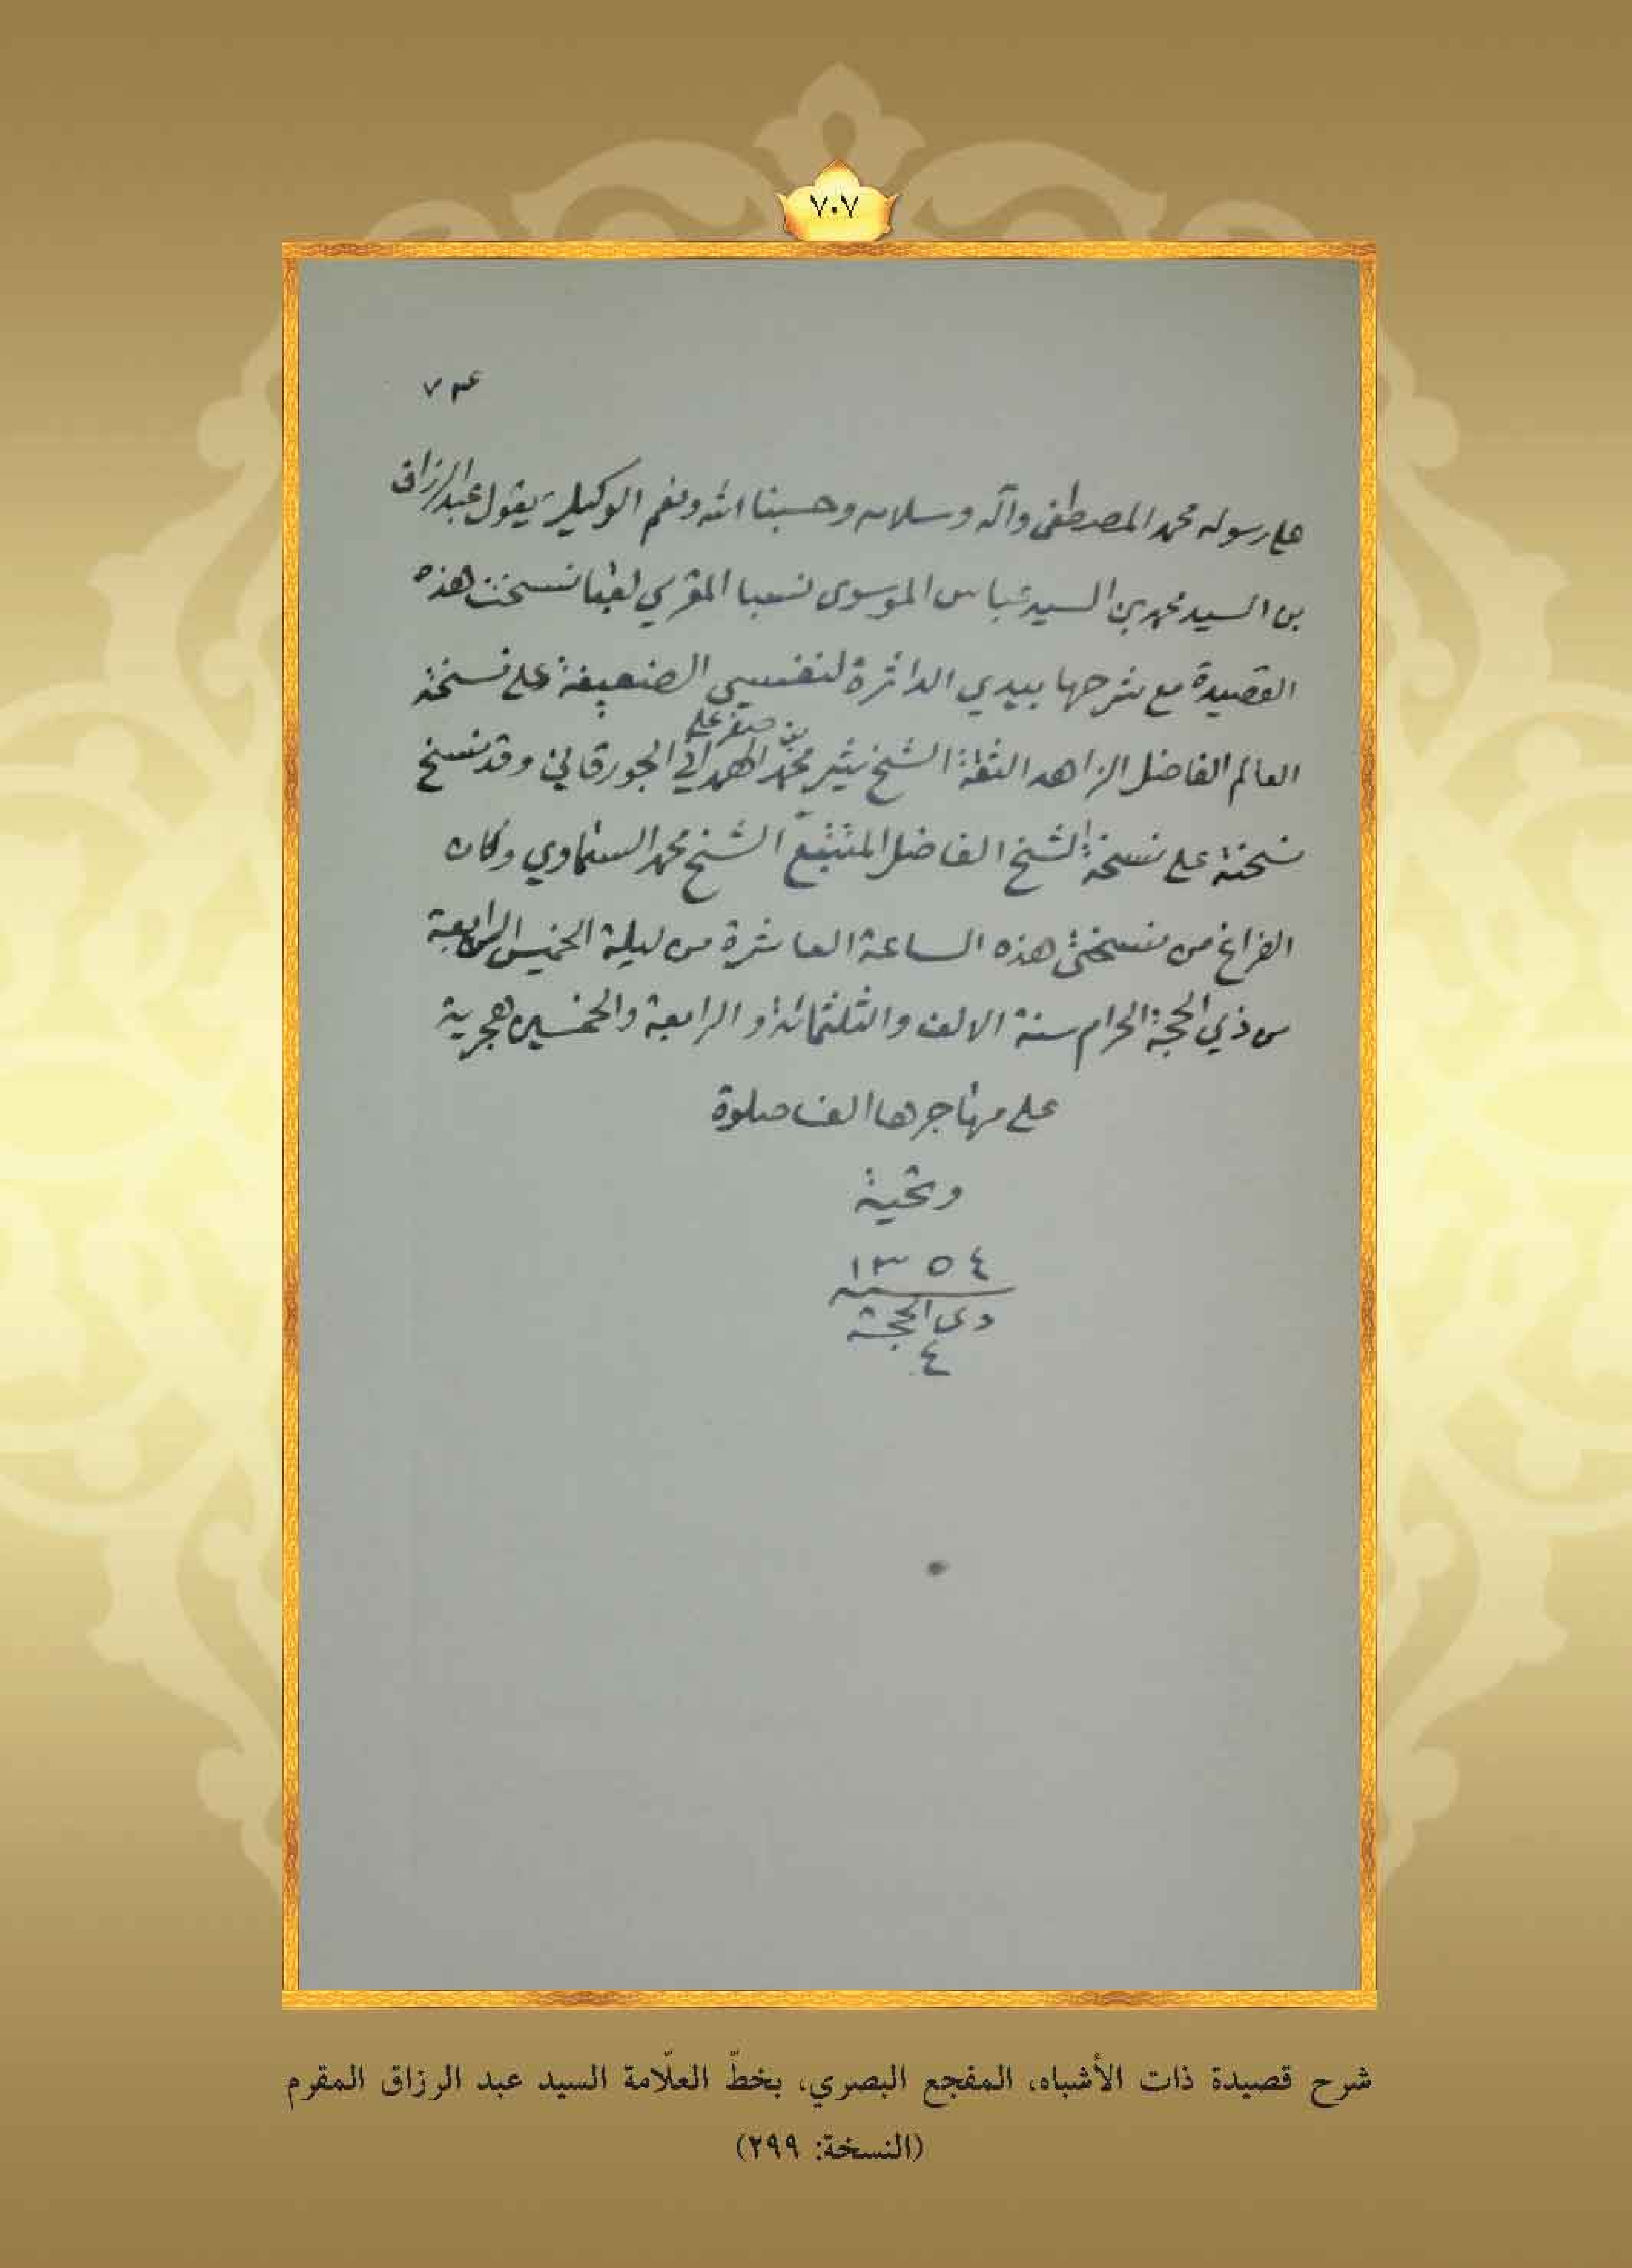 ٧٠٧
٧٣
على رسوله محمد المصطفى وآله وسلامه وحسبنا الله ونعم الوكيل يقول عبد الرزاق
بن السيد محمد بن السيد عباس الموسوى نسبا المقرمي لقبا نسخت هذه
القصيدة مع شرحها بيدي الداثرة لنفسي الضعيفة على نسخة
بن صفر علي
العالم الفاضل الزاهد الثقة الشيخ شير محمد الهمداني الجورقاني وقد نسخ
نسخته على نسخة الشيخ الفاضل المتتبع الشيخ محمد السماوي وكان
الفراغ من نسختي هذه الساعة العاشرة من ليلة الخميس الرابعة
من ذي الحجة الحرام سنة الالف والثلثمائة و الرابعة والخمسين هجرية
على مهاجرها الف صلوة
وتحية
١٣٥٤
ذي الحجة
٤
شرح قصيدة ذات الأشباه، المفجع البصري، بخطّ العلّامة السيد عبد الرزاق المقرم
(النسخة: ٢٩٩)